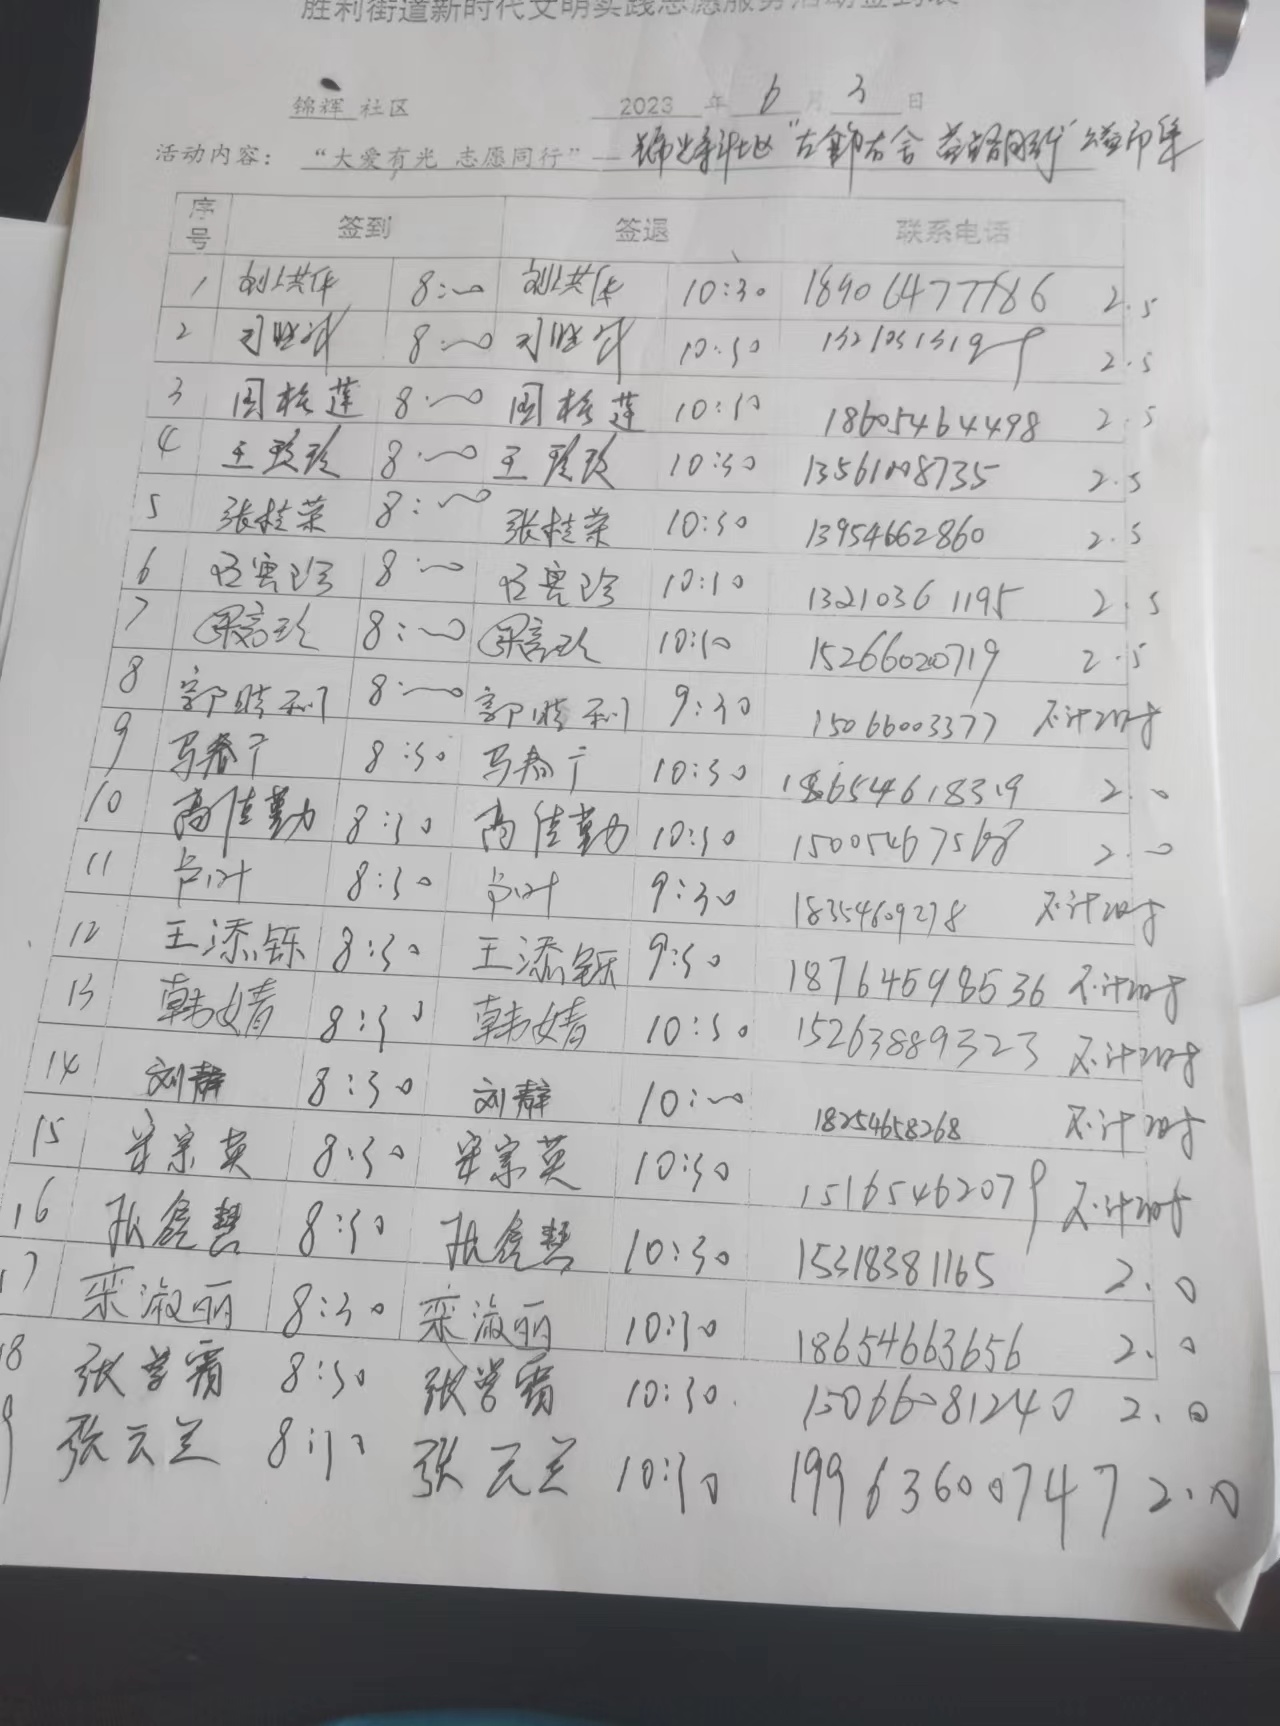 胜利街道新时代文明实践志愿服务活动签到表
锦辉 社区 2023 年 6 月 3 日
活动内容： “大爱有光 志愿同行”—
序号 签到 签退 联系电话
1 刘洪华 8:00 刘洪华 10:30 18906477786 2.5
2 8:00 10:30 2.5
3 周格莲 8:00 周格莲 10:30 18605464498 2.5
4 王玲玲 8:00 王玲玲 10:30 13561008735 2.5
5 张桂荣 8:00 张桂荣 10:30 13954662860 2.5
6 8:00 10:30 13210361195 2.5
7 8:00 10:30 15266020719 2.5
8 郭胜利 8:00 郭胜利 9:30 15066003377 不计时
9 马春广 8:30 马春广 10:30 18654618319 2.0
10 高佳勤 8:30 高佳勤 10:30 2.0
11 卢叶 8:30 卢叶 9:30 18354609278 不计时
12 王添铄 8:30 王添铄 9:30 18764598536 不计时
13 韩婧 8:30 韩婧 10:30 15263889323 不计时
14 刘静 8:30 刘静 10:00 18254658268 不计时
15 宋宗英 8:30 宋宗英 10:30 15165462079 不计时
16 张鑫慧 8:30 张鑫慧 10:30 15318381165 2.0
17 栾淑丽 8:30 栾淑丽 10:30 18654663656 2.0
18 张学霜 8:30 张学霜 10:30 15066081240 2.0
9 张云兰 8:30 张云兰 10:30 19963600747 2.0